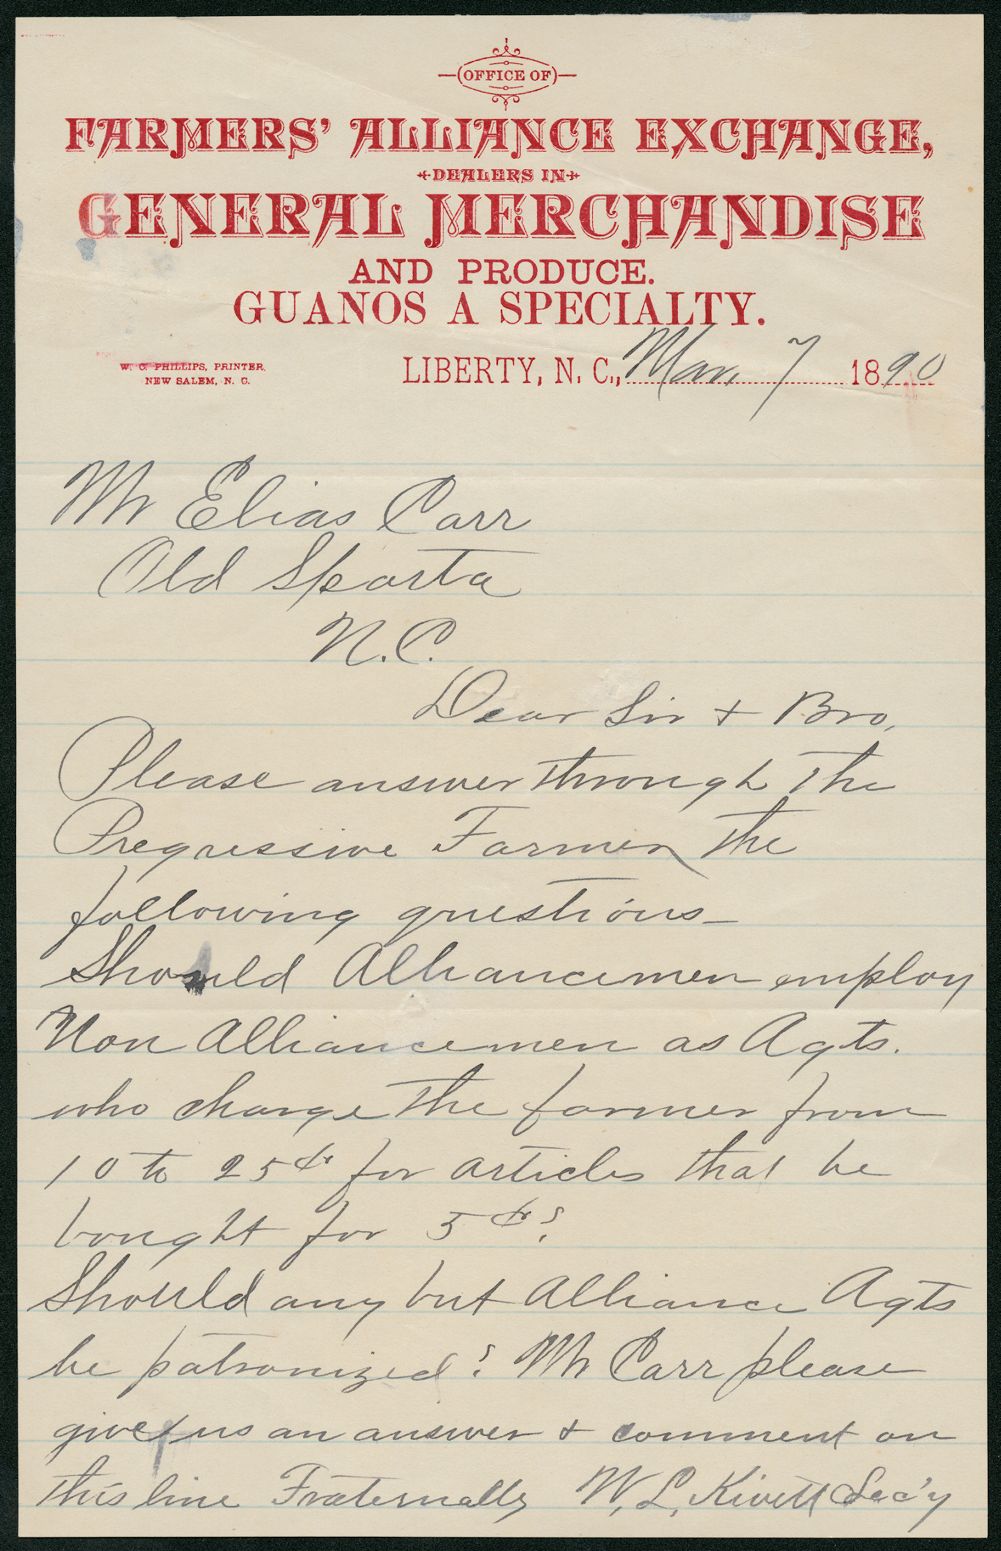 OFFICE OF
FARMERS' ALLIANCE EXCHANGE,
DEALERS IN
GENERAL MERCHANDISE
AND PRODUCE.
GUANOS A SPECIALTY.
W. C. PHILLIPS, PRINTER,
NEW SALEM, N. C.
LIBERTY, N. C., Mar. 7 1890
Mr Elias Carr
Old Sparta
N.C.
Dear Sir & Bro,
Please answer through the
Progressive Farmer the
following questions—
Should Alliancemen employ
Non Alliancemen as Agts.
who charge the farmer from
10 to 25 cts for articles that be
bought for 5 cts?
Should any but Alliance Agts
be patronized? Mr Carr please
give us an answer & comment on
this line Fraternally W. L. Kivett Sec'y